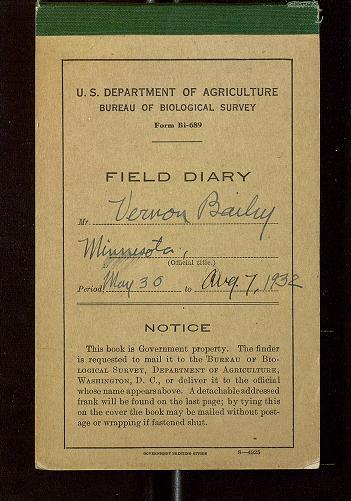 U. S. DEPARTMENT OF AGRICULTURE
BUREAU OF BIOLOGICAL SURVEY
Form Bi-689
FIELD DIARY
Mr. Vernon Bailey
Minnesota,
(Official title.)
Period May 30 to Aug. 7, 1932
NOTICE
This book is Government property. The finder
is requested to mail it to the BUREAU OF BIO-
LOGICAL SURVEY, DEPARTMENT OF AGRICULTURE,
WASHINGTON, D. C., or deliver it to the official
whose name appears above. A detachable addressed
frank will be found on the last page; by tying this
on the cover the book may be mailed without post-
age or wrapping if fastened shut.
GOVERNMENT PRINTING OFFICE 8—4925